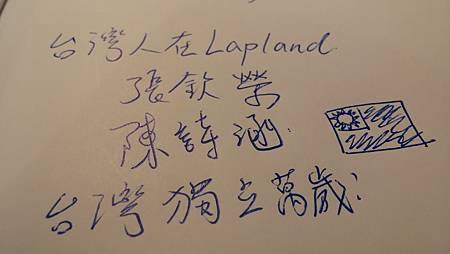 台灣人在Lapland.
張欽榮
陳詩涵.
台灣獨立萬歲!